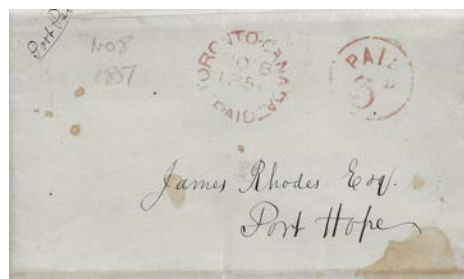 NO 8
1857
TORONTO·CANADA
NO 8
PAID
PAID
3
James Rhodes Esq.
Port Hope